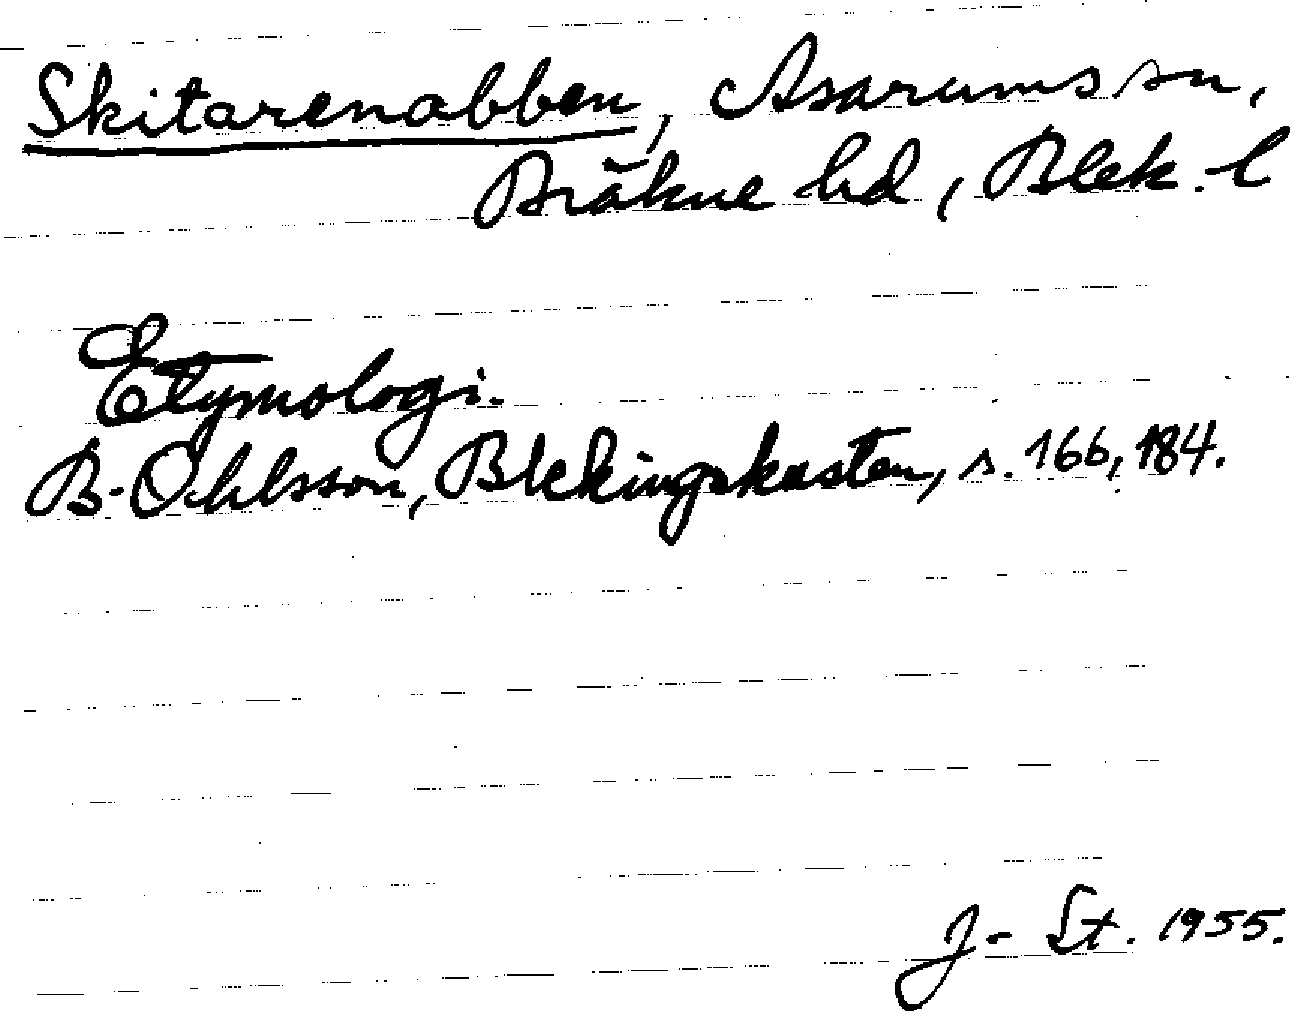 Skitarenabben, Asarums sn,
Bräkne hd, Blek. l
Etymologi.
B. Ohlsson, Blekingskusten, s. 166, 184.
J. St. 1955.